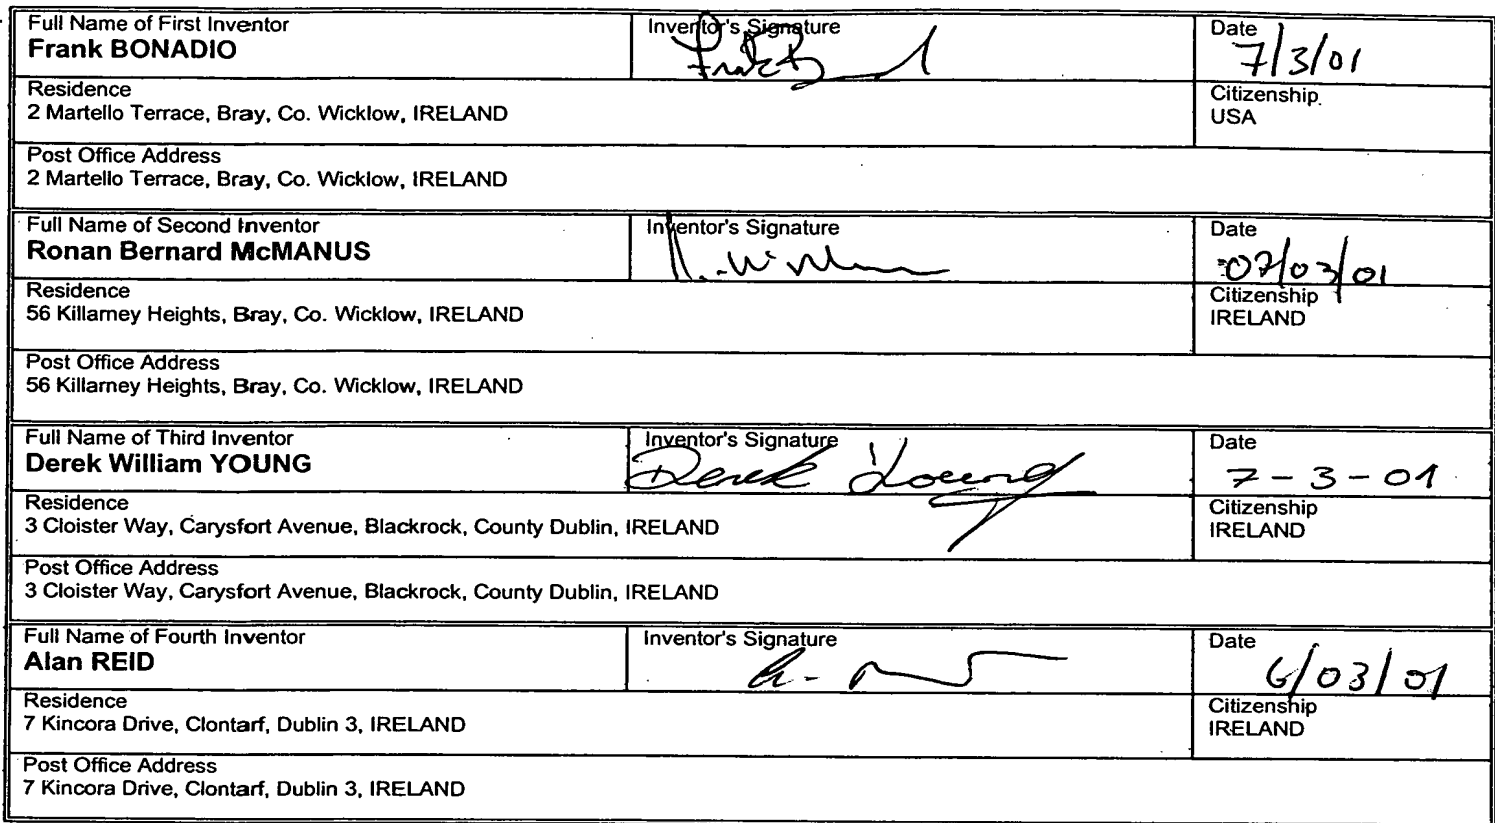 Full Name of First Inventor
Frank BONADIO
Inventor's Signature
Date
7/3/01
Residence
2 Martello Terrace, Bray, Co. Wicklow, IRELAND
Citizenship
USA
Post Office Address
2 Martello Terrace, Bray, Co. Wicklow, IRELAND
Full Name of Second Inventor
Ronan Bernard McMANUS
Inventor's Signature
Date
07/03/01
Residence
56 Killarney Heights, Bray, Co. Wicklow, IRELAND
Citizenship
IRELAND
Post Office Address
56 Killarney Heights, Bray, Co. Wicklow, IRELAND
Full Name of Third Inventor
Derek William YOUNG
Inventor's Signature
Derek Young
Date
7-3-01
Residence
3 Cloister Way, Carysfort Avenue, Blackrock, County Dublin, IRELAND
Citizenship
IRELAND
Post Office Address
3 Cloister Way, Carysfort Avenue, Blackrock, County Dublin, IRELAND
Full Name of Fourth Inventor
Alan REID
Inventor's Signature
Date
6/03/01
Residence
7 Kincora Drive, Clontarf, Dublin 3, IRELAND
Citizenship
IRELAND
Post Office Address
7 Kincora Drive, Clontarf, Dublin 3, IRELAND